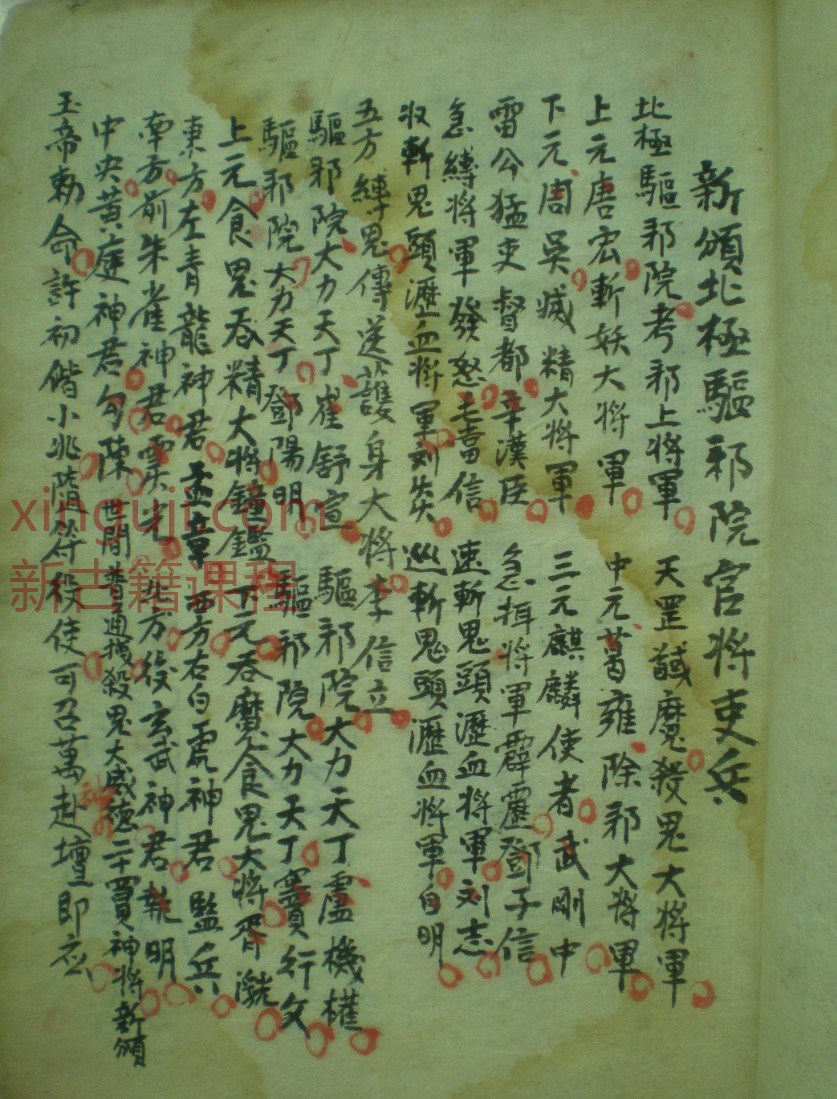 新頒北極驅邪院官將吏兵
北極驅邪院考邪上將軍 天罡馘魔殺鬼大將軍
上元唐宏斬妖大將軍 中元葛雍除邪大將軍
下元周吳滅精大將軍 三元麒麟使者武剛中
雷公猛吏督都辛漢臣 急捉將軍霹靂鄧子信
急縛將軍發怒毛喜信 速斬鬼頭瀝血將軍刘志
收斬鬼頭瀝血將軍刘英 巡斬鬼頭瀝血將軍白明
五方縛鬼傳送護身大將李信立
驅邪院大力天丁崔舒宣 驅邪院大力天丁盧機權
驅邪院大力天丁鄧陽明 驅邪院大力天丁竇行文
上元食鬼吞精大將鐘鑑 下元吞魔食鬼大將
東方左青龍神君孟章 西方右白虎神君監兵
南方前朱雀神君 北方後玄武神君執明
中央黃庭神君勾陳 世間普通 殺鬼大威德二十 神將新頒
玉帝勅命許初 小兆隨符役使可召萬赴壇即應
xinguji.com
新古籍课程